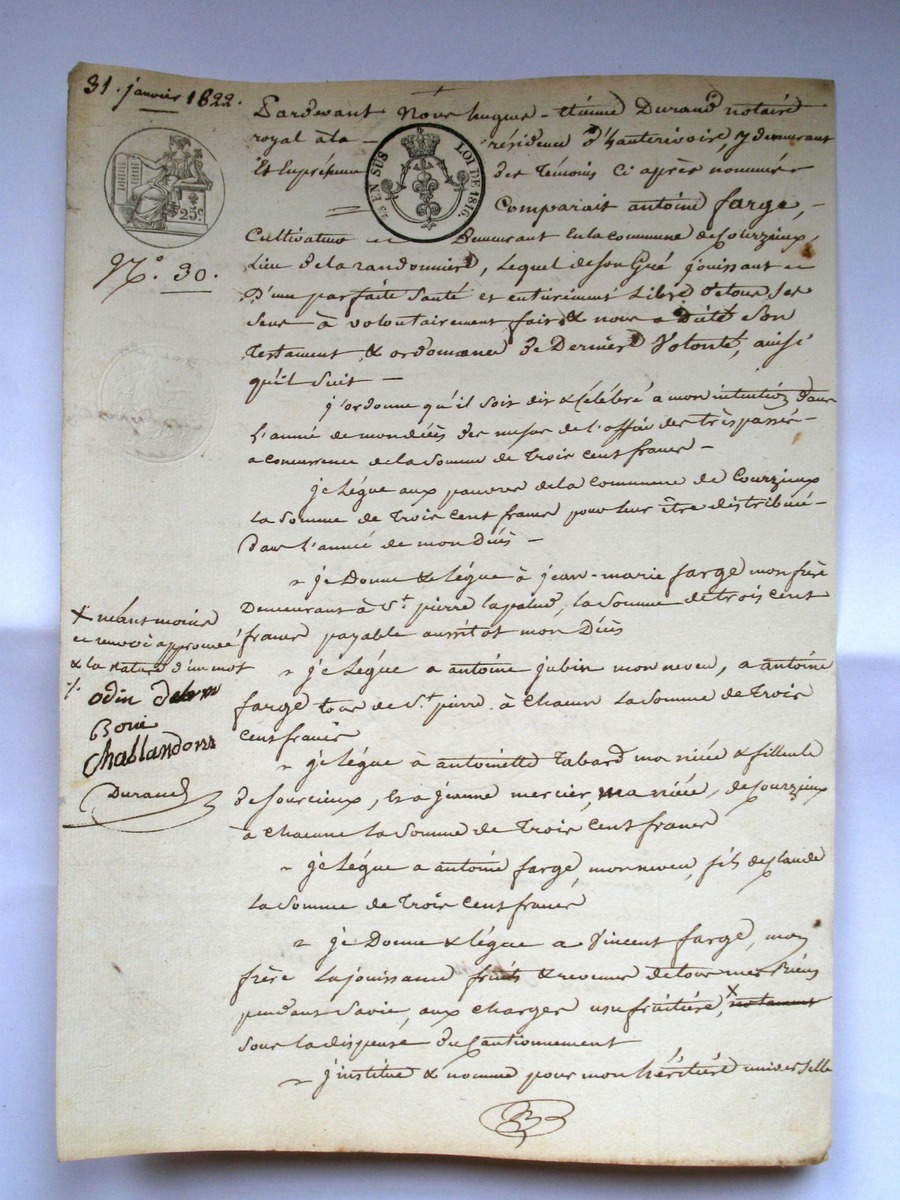 31. janvier 1822.
Pardevant Nous hugues - étienne Durand notaire
royal à la résidence d'hauterivoire, y demeurant
Et En présence des témoins Ci après nommés
25 c
EN SUS
LOI DE 1816.
Comparait antoine farge,
Cultivateur Demeurant En la commune de Courzieux,
N.º 30.
Lieu de la randonniere, Lequel de son Gré jouissant
D'une parfaite Santé et entièrement Libre de tous Ses
Sens à volontairement fait & nous a Dicté Son
testament & ordonnance de Derniere Volonté, ainsi
qu'il Suit —
j'ordonne qu'il Soit dit & Célébré a mon intention dans
L'année de mon décès des messes de l'office des trépassés -
a concurrence de la Somme de Trois Cent francs -
je Lègue aux pauvres de la Commune de Courzieux
La Somme de Trois Cent francs pour leur être distribués -
dans l'année de mon Décès -
je Donne & Lègue à jean-marie farge mon frère
Demeurant à S.t pierre lapalud, la Somme de trois Cent
francs payable aussitot mon Décès
je Lègue a antoine jubin mon neveu, a antoine
farge tous de S.t pierre à Chacun La Somme de Trois
Cent francs
je Lègue à antoinette tabard ma nièce & filleule
de Sourcieux, Et a jeanne mercier, ma nièce, de Courzieux
à Chacune la Somme de Trois Cent francs
je Lègue a antoine farge, mon neveu, fils de Claude
La Somme de Trois Cent francs
je Donne & lègue a Vincent farge, mon
frère La jouissance fruits & revenus de tous mes Biens
pendant Sa vie, aux Charges usufruitière, x notament
Sous la dispense du Cautionnement
j'institue & nomme pour mon héritière universelle
x néantmoins
ce renvoi approuvé
& la rature d'un mot
odin
Challandon
Durand